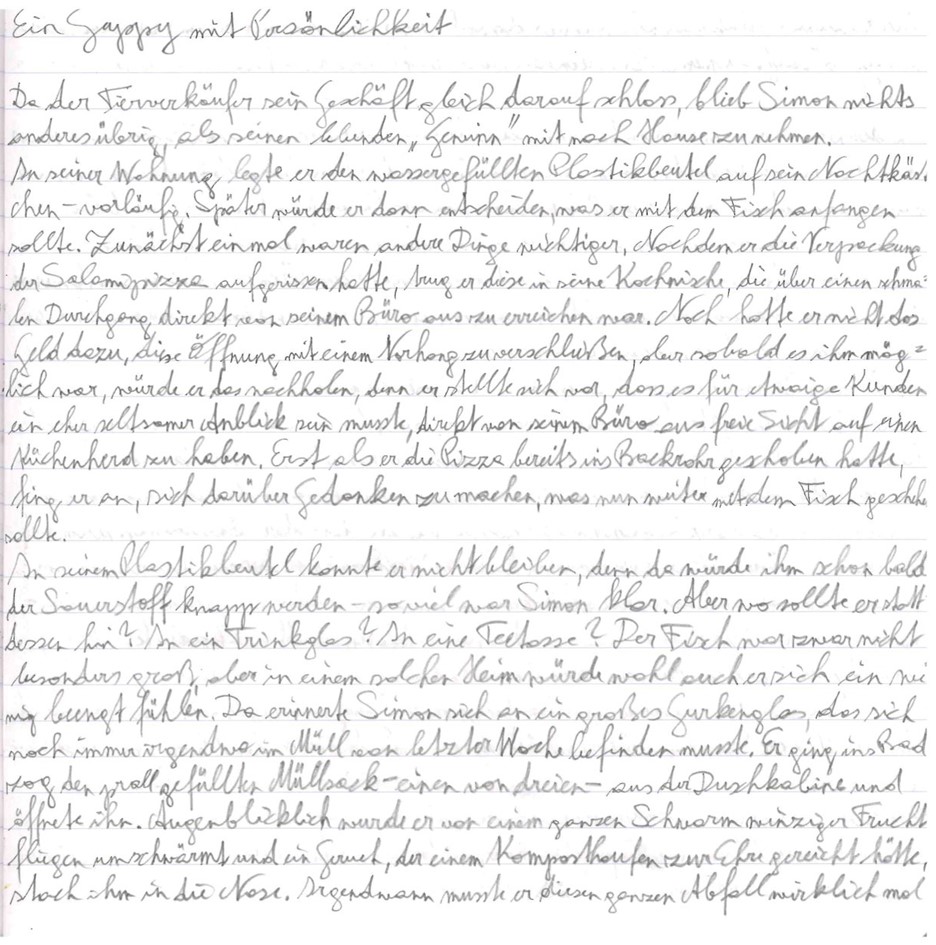 Ein Guppy mit Persönlichkeit
Da der Tierverkäufer sein Geschäft gleich darauf schloss, blieb Simon nichts
anderes übrig, als seinen lebenden „Gewinn" mit nach Hause zu nehmen.
In seiner Wohnung legte er den wassergefüllten Plastikbeutel auf sein Nachtkäst
chen – vorläufig. Später würde er dann entscheiden, was er mit dem Fisch anfangen
sollte. Zunächst einmal waren andere Dinge wichtiger. Nachdem er die Verpackung
der Salamipizza aufgerissen hatte, trug er diese in seine Kochnische, die über einen schma=
len Durchgang direkt von seinem Büro aus zu erreichen war. Noch hatte er nicht das
Geld dazu, diese Öffnung mit einem Vorhang zu verschließen, aber sobald es ihm mög=
lich war, würde er das nachholen, denn er stellte sich vor, dass es für etwaige Kunden
ein eher seltsamer Anblick sein musste, direkt von seinem Büro aus freie Sicht auf einen
Küchenherd zu haben. Erst als er die Pizza bereits ins Backrohr geschoben hatte,
fing er an, sich darüber Gedanken zu machen, was nun weiter mit dem Fisch geschehe
sollte.
In seinem Plastikbeutel konnte er nicht bleiben, denn da würde ihm schon bald
der Sauerstoff knapp werden – so viel war Simon klar. Aber wo sollte er statt
dessen hin? In ein Trinkglas? In eine Teetasse? Der Fisch war zwar nicht
besonders groß, aber in einem solchen Heim würde wohl auch er sich ein we
nig beengt fühlen. Da erinnerte Simon sich an ein großes Gurkenglas, das sich
noch immer irgendwo im Müll von letzter Woche befinden musste. Er ging ins Bad
zog den prall gefüllten Müllsack – einen von dreien – aus der Duschkabine und
öffnete ihn. Augenblicklich wurde er von einem ganzen Schwarm winziger Frucht
fliegen umschwärmt und ein Geruch, der einem Komposthaufen zur Ehre gereicht hätte,
stach ihm in die Nase. Irgendwann musste er diesen ganzen Abfall wirklich mal